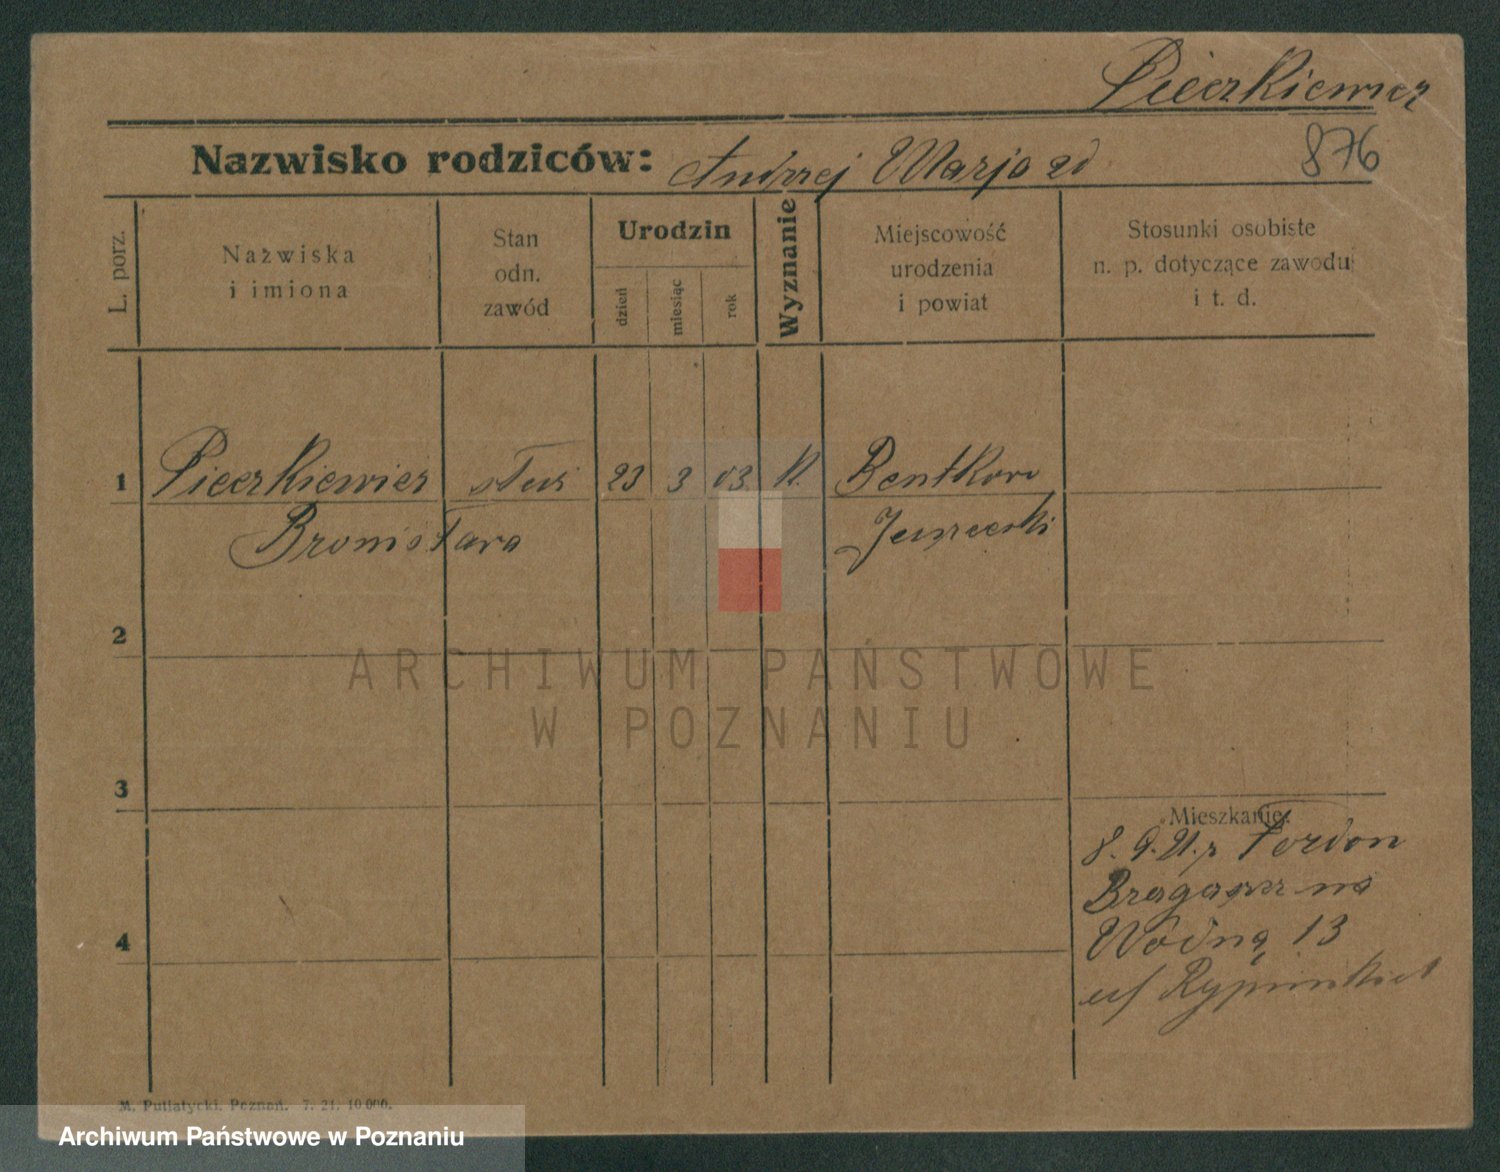 Pieczkiewicz
Nazwisko rodziców: Andrzej Marja
876
L. porz.
Nazwiska
i imiona
Stan
odn.
zawód
Urodzin
dzień
miesiąc
rok
Wyznanie
Miejscowość
urodzenia
i powiat
Stosunki osobiste
n. p. dotyczące zawodu
i t. d.
1
Pieczkiewicz
23 3 03 K.
Bentkowo
Bronisława
2
ARCHIWUM PAŃSTWOWE
W POZNANIU
3
Mieszkanie:
8. 9. 21. Fordon
na
Wodną 13
4
M. Putiatycki. Poznań. 7. 21. 10 000.
Archiwum Państwowe w Poznaniu